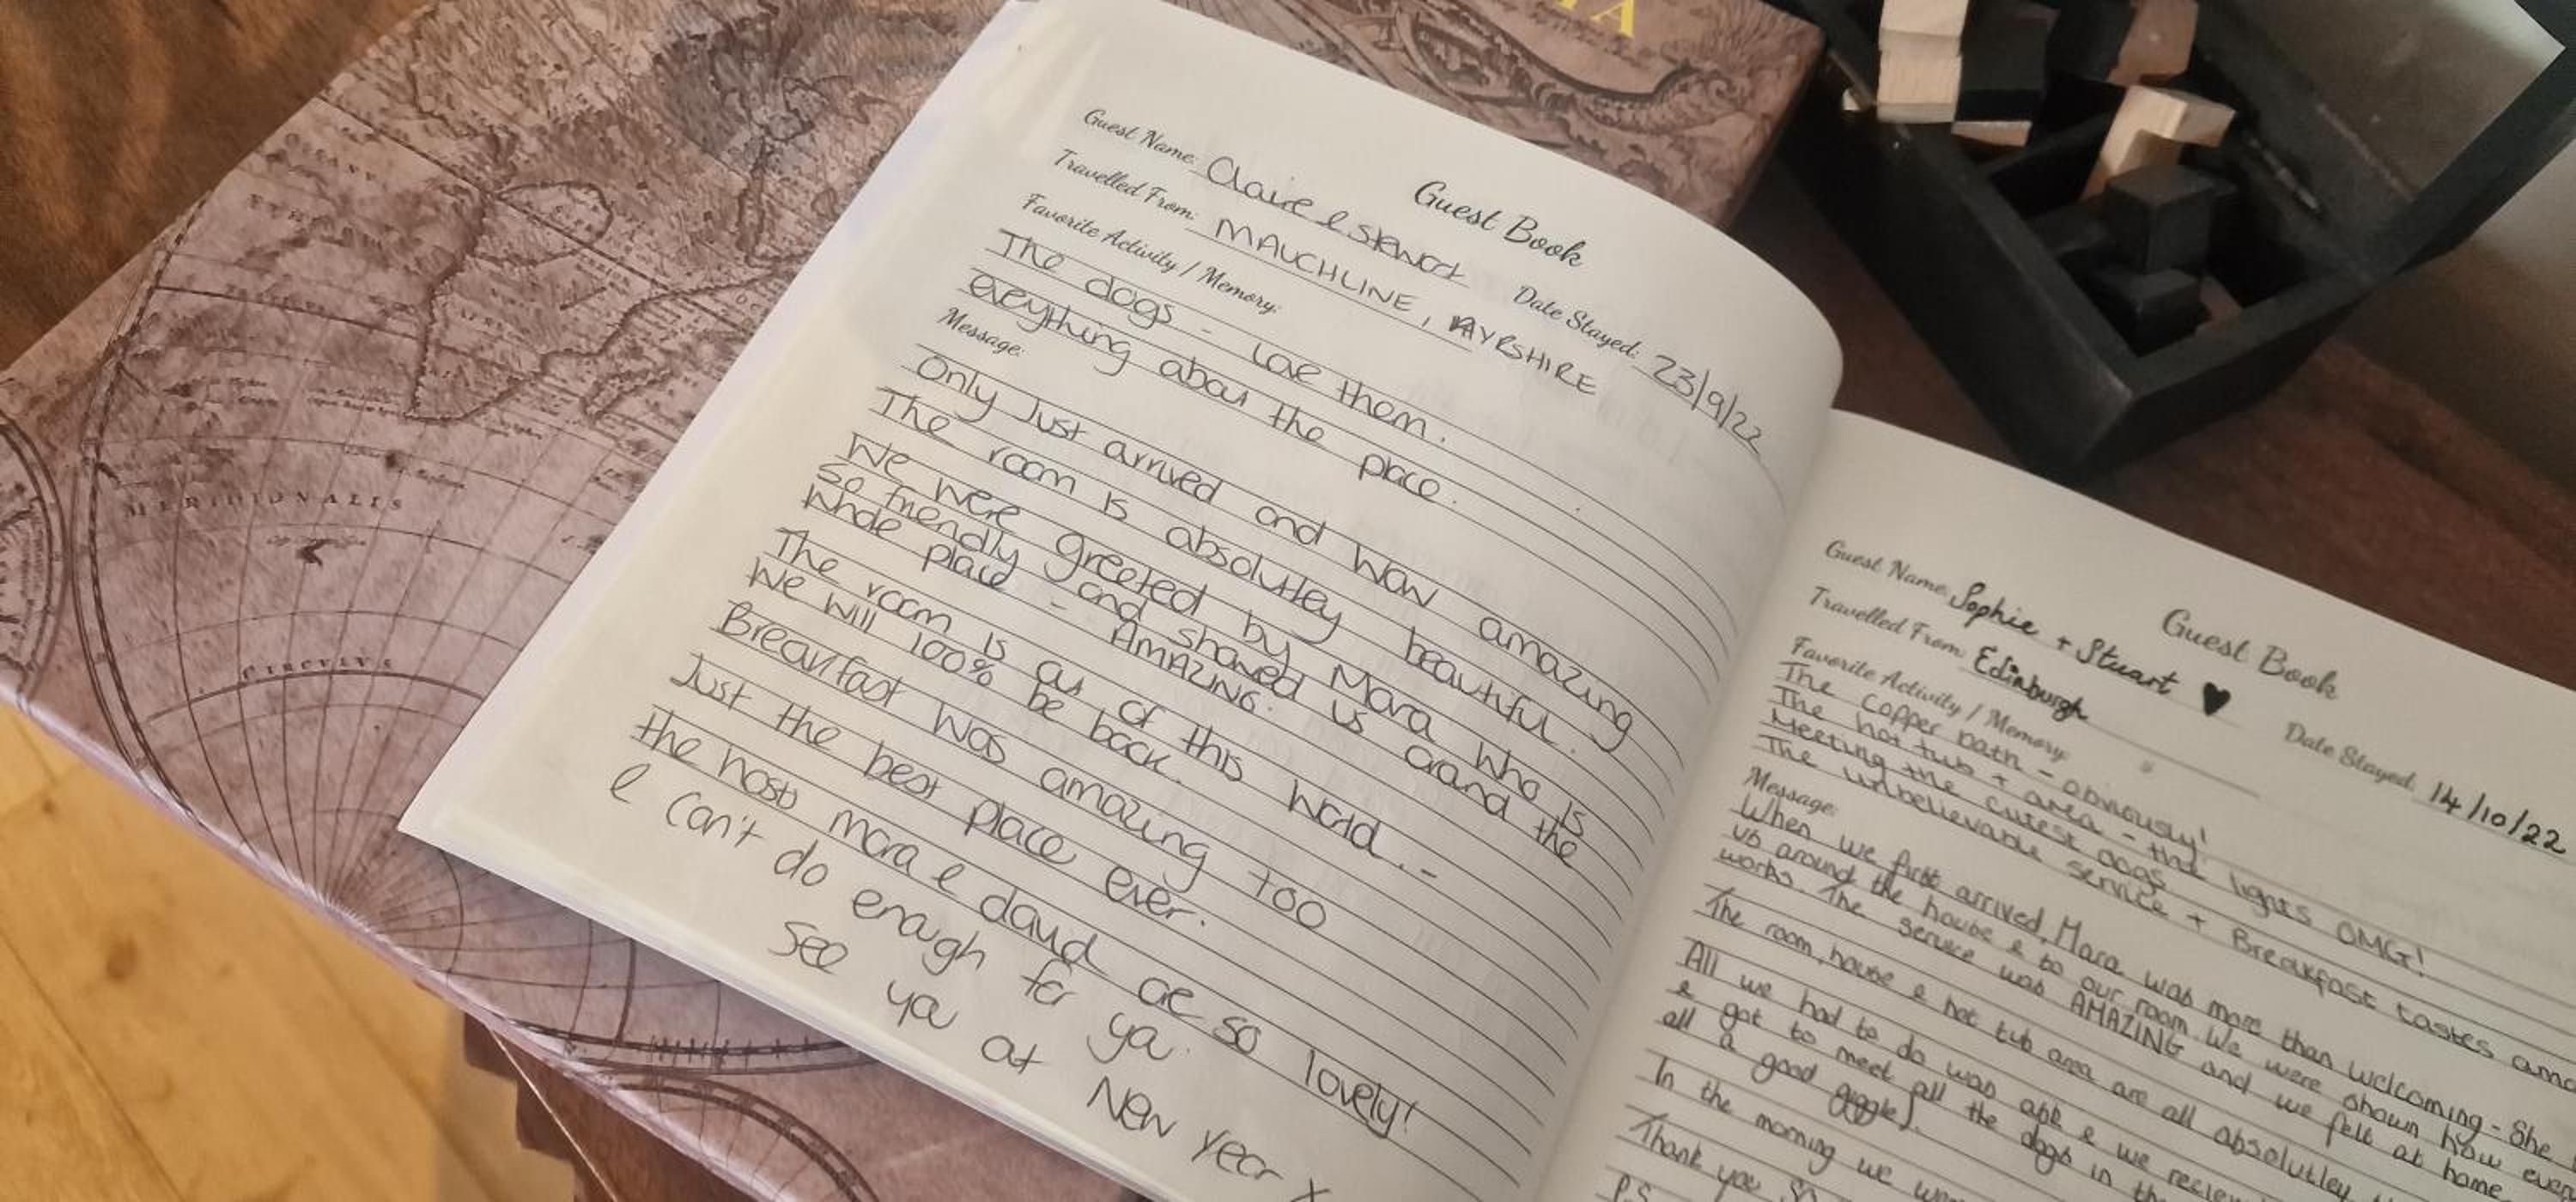 Guest Book
Guest Name: Claire & Stewart
Travelled From: MAUCHLINE, AYRSHIRE
Date Stayed: 23/9/22
Favorite Activity / Memory:
The dogs - love them.
everything about the place.
Message:
Only Just arrived and wow amazing
The room is absolutley beautiful.
We were greeted by Mara who is
so friendly and showed us around the
whole place - AMAZING.
The room is out of this world. -
we will 100% be back.
Breakfast was amazing too
Just the best place ever.
the hosts mara & david are so lovely!
& can't do enough for ya.
See ya at New Year x
Guest Book
Guest Name: Sophie + Stuart ♥
Travelled From: Edinburgh
Date Stayed: 14/10/22
Favorite Activity / Memory:
The copper bath - obviously!
The hot tub + area - the lights OMG!
Meeting the cutest dogs
The unbelievable service + Breakfast tastes
Message:
When we first arrived, Mara was more than welcoming - She
us around the house & to our room. We were shown how
works. The service was AMAZING and we felt at home
The room, house & hot tub area are all absolutley
All we had to do was ask & we
& got to meet all the dogs in
all a good giggle).
In the morning we
Thank you
P.S
MERIDIONALIS
CIRCULUS